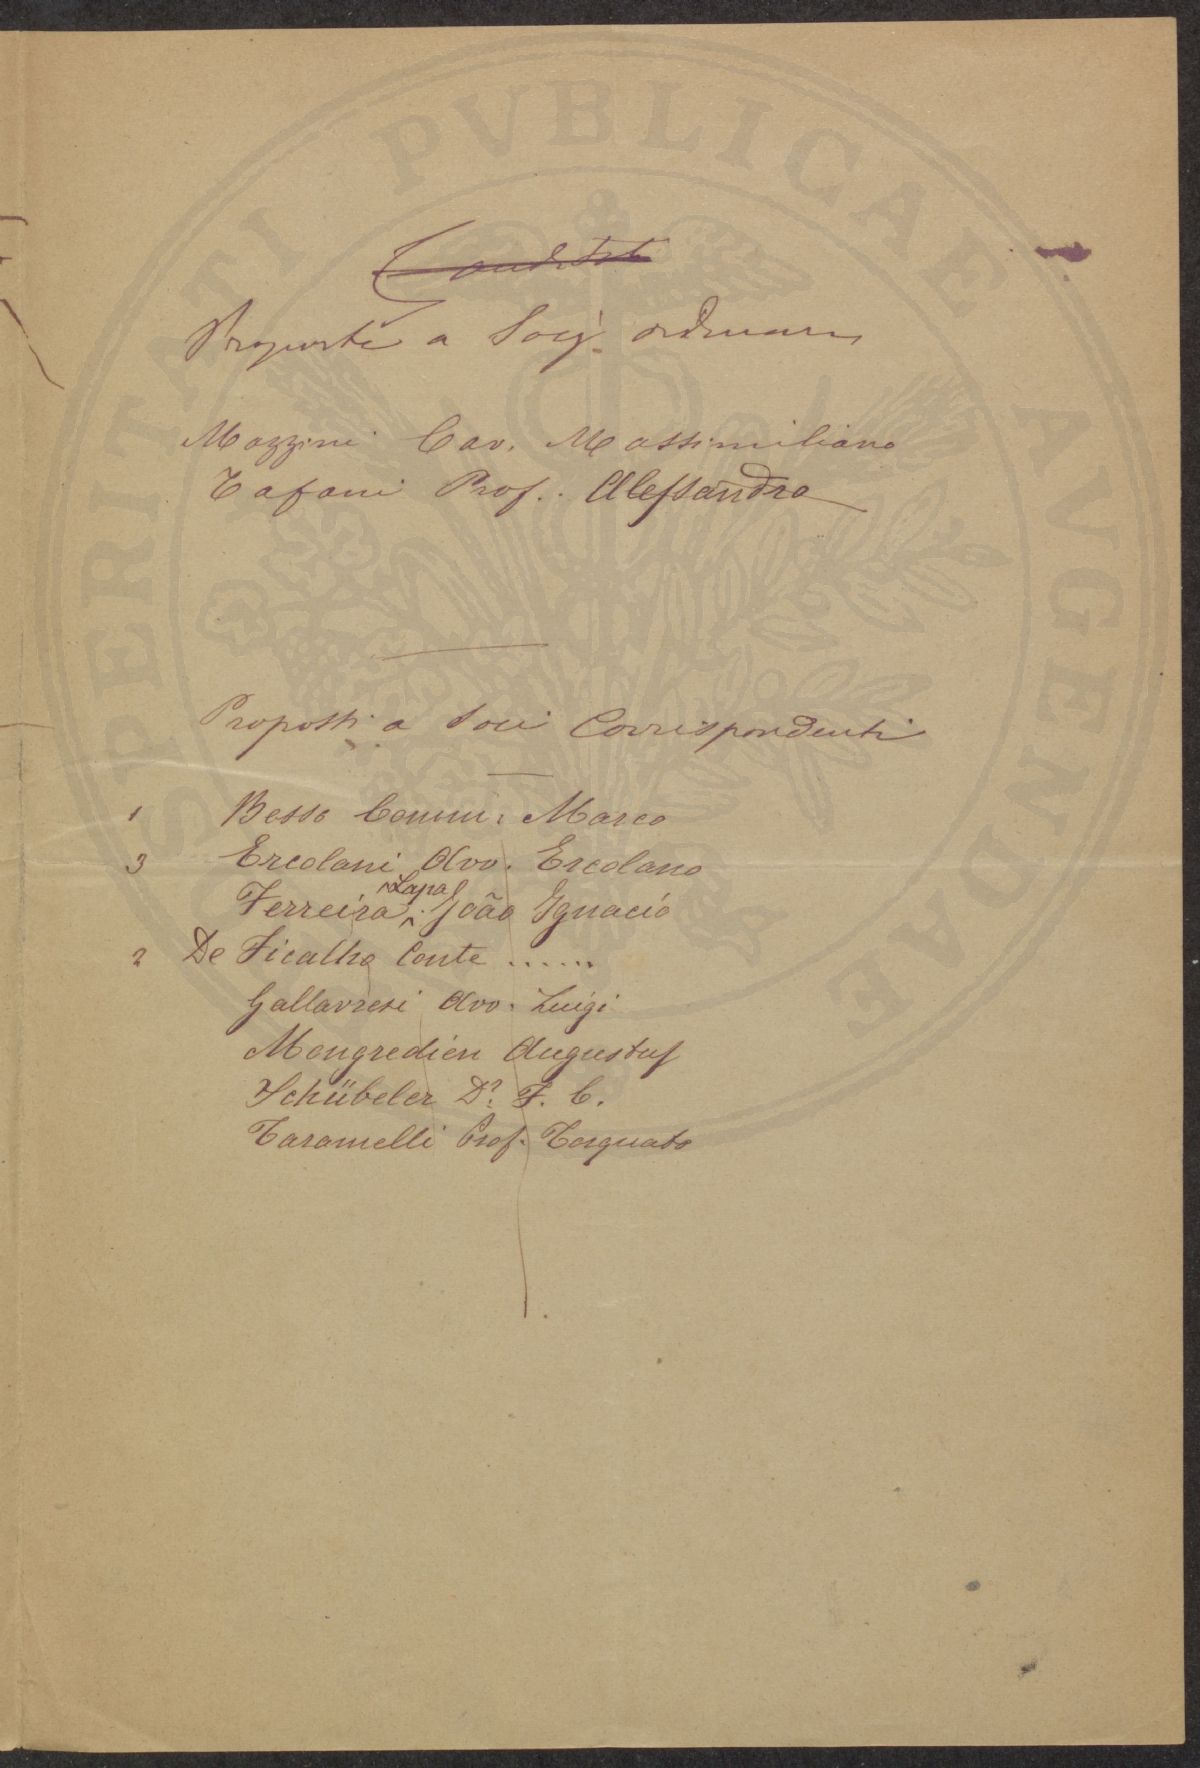 PROSPERITATI PVBLICAE AVGENDAE
Candidati
Proposti a Socj ordinari
Mazzini Cav. Massimiliano
Tafani Prof. Alessandro
Proposti a Soci Corrispondenti
1 Besso Comm. Marco
3 Ercolani Avv. Ercolano
Ferreira Lapa João Ignacio
2 De Ficalho Conte ......
Gallavresi Avv. Luigi
Mongredien Augustus
Schübeler Dr. F. C.
Taramelli Prof. Torquato